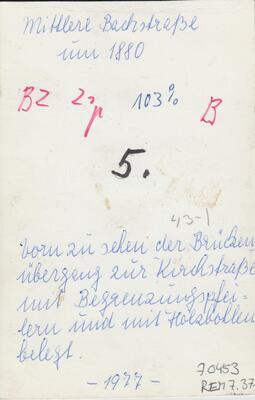 Mittlere Bachstraße
um 1880
BZ 2sp 103% B
5.
43-1
vorn zu sehen der Brücken
übergang zur Kirchstraße
mit Begrenzungspfei-
lern und mit Holzbollen
belegt.
- 1977 -
70453
REM 7.37